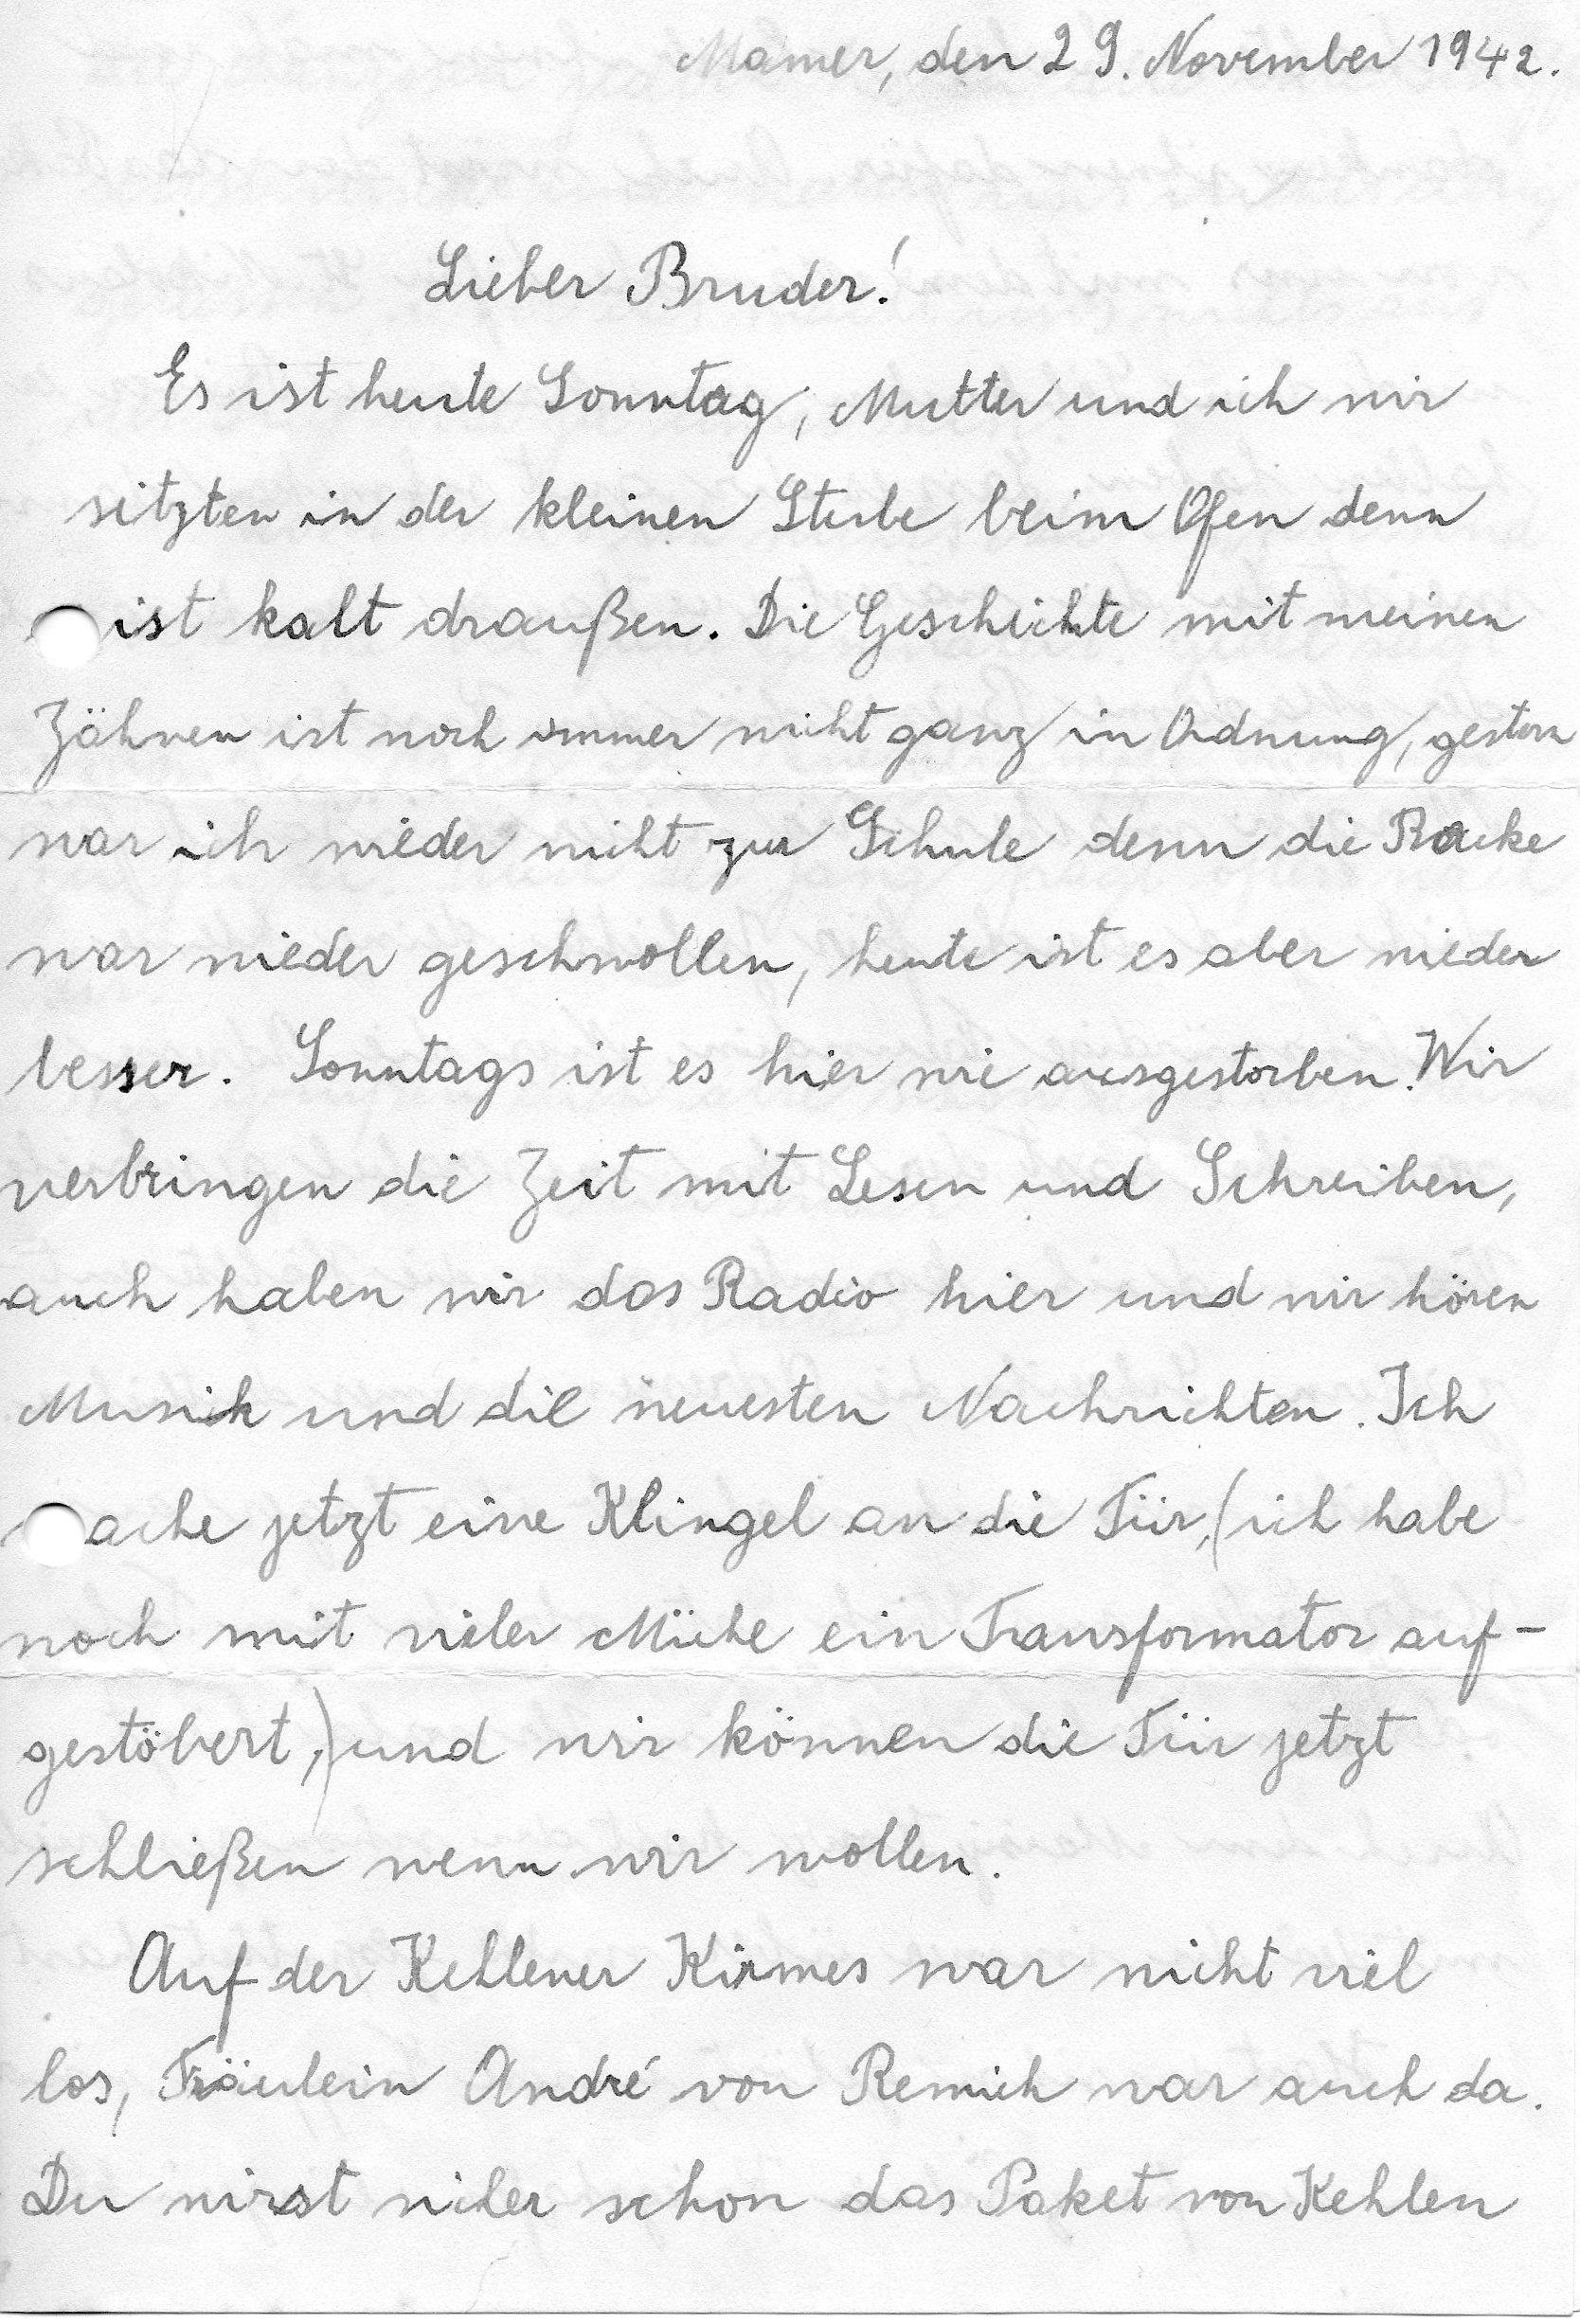 Mamer, den 29. November 1942.
Lieber Bruder!
Es ist heute Sonntag, Mutter und ich wir
sitzten in der kleinen Stube beim Ofen denn
ist kalt draußen. Die Geschichte mit meinen
Zähnen ist noch immer nicht ganz in Ordnung, gestern
war ich wieder nicht zur Schule denn die Backe
war wieder geschwollen, heute ist es aber wieder
besser. Sonntags ist es hier wie ausgestorben. Wir
verbringen die Zeit mit Lesen und Schreiben,
auch haben wir das Radio hier und wir hören
Musik und die neuesten Nachrichten. Ich
ache jetzt eine Klingel an die Tür, (ich habe
noch mit vieler Mühe ein Transformator auf-
gestöbert,) und wir können die Tür jetzt
schließen wenn wir wollen.
Auf der Kehlener Kirmes war nicht viel
los, Fräulein André von Remich war auch da.
Du wirst sicher schon das Paket von Kehlen